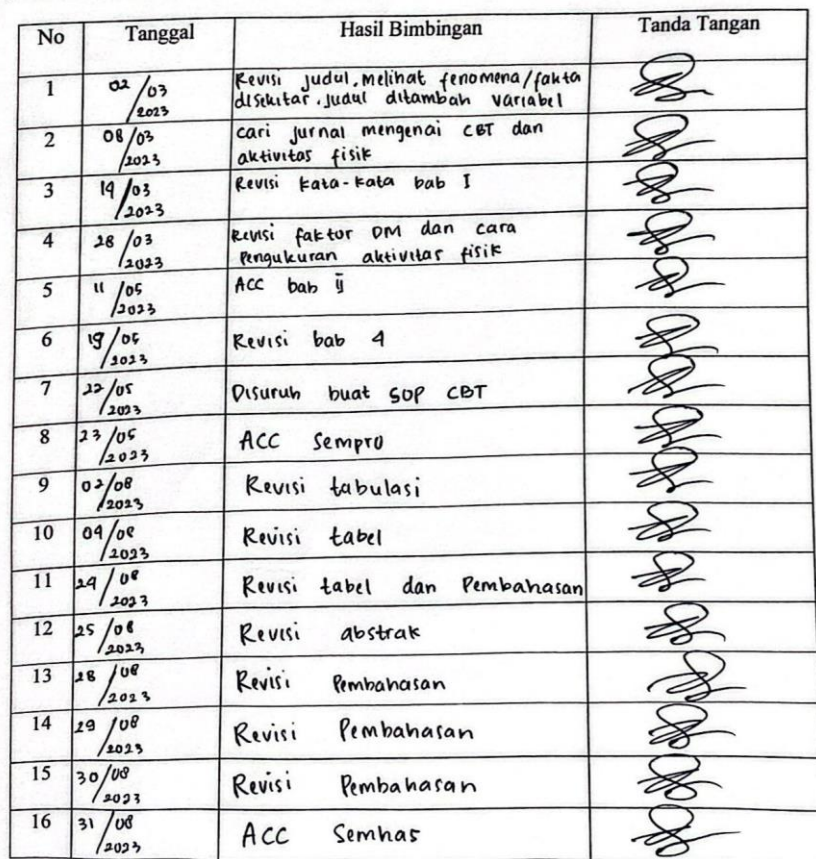 No Tanggal Hasil Bimbingan Tanda Tangan
1 02/03 2023 Revisi judul, Melihat fenomena/fakta
disekitar, judul ditambah variabel
2 08/03 2023 cari jurnal mengenai CBT dan
aktivitas fisik
3 19/03 2023 Revisi kata-kata bab I
4 28/03 2023 Revisi faktor DM dan cara
Pengukuran aktivitas fisik
5 11/05 2023 ACC bab ii
6 19/05 2023 Revisi bab 4
7 22/05 2023 Disuruh buat SOP CBT
8 23/05 2023 ACC Sempro
9 02/08 2023 Revisi tabulasi
10 04/08 2023 Revisi tabel
11 24/08 2023 Revisi tabel dan Pembahasan
12 25/08 2023 Revisi abstrak
13 28/08 2023 Revisi Pembahasan
14 29/08 2023 Revisi Pembahasan
15 30/08 2023 Revisi Pembahasan
16 31/08 2023 ACC Semhas